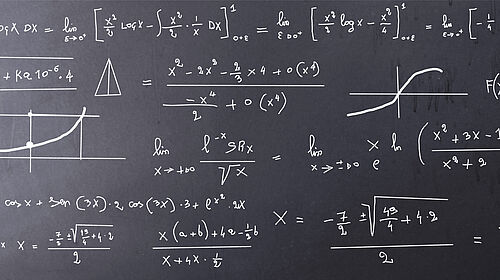 log x DX = lim ε→0⁺ [ x²/2 log x - ∫ x²/2 · 1/x DX ]¹₀₊ε = lim ε→0⁺ [ x²/2 log x - x²/4 ]¹₀₊ε = lim ε→0⁺ [ -1/4
+ Ka 10⁻⁶ · 4
= (x² - 2x² - 2/3 x4 + 0(x⁴)) / (-x⁴/2 + 0(x⁴))
F(
lim x→+∞ / √x = lim x→±∞ x ln ( (x² + 3x - 1 / x² + 2
e
cos x + 3 sen (3x) · 2 cos (3x) · 3 + e^x² · 2x
x = (-7/2 ± √(49/4 + 4·2)) / 2
(x(a+b) + 4a - 1/3 b) / (x + 4x · 1/2)
X = (-7/2 ± √(49/4 + 4·2)) / 2 =